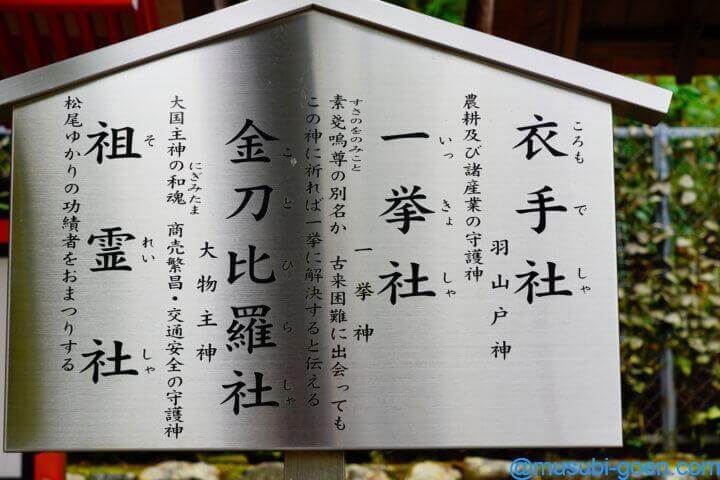 衣手社
ころもでしゃ
羽山戸神
農耕及び諸産業の守護神
一挙社
いっきょしゃ
一挙神
すさのをのみこと
素戔嗚尊の別名か 古来困難に出会っても
この神に祈れば一挙に解決すると伝える
金刀比羅社
ことひらしゃ
大物主神
にぎみたま
大国主神の和魂 商売繁昌・交通安全の守護神
祖霊社
それいしゃ
松尾ゆかりの功績者をおまつりする
@musubi-goen.com